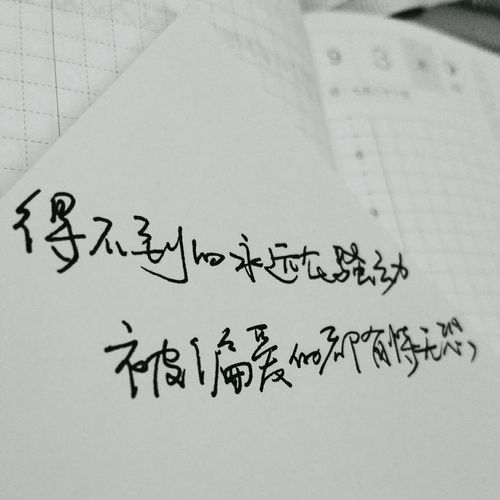 9 3
得不到的永远在骚动
被偏爱的却有恃无恐